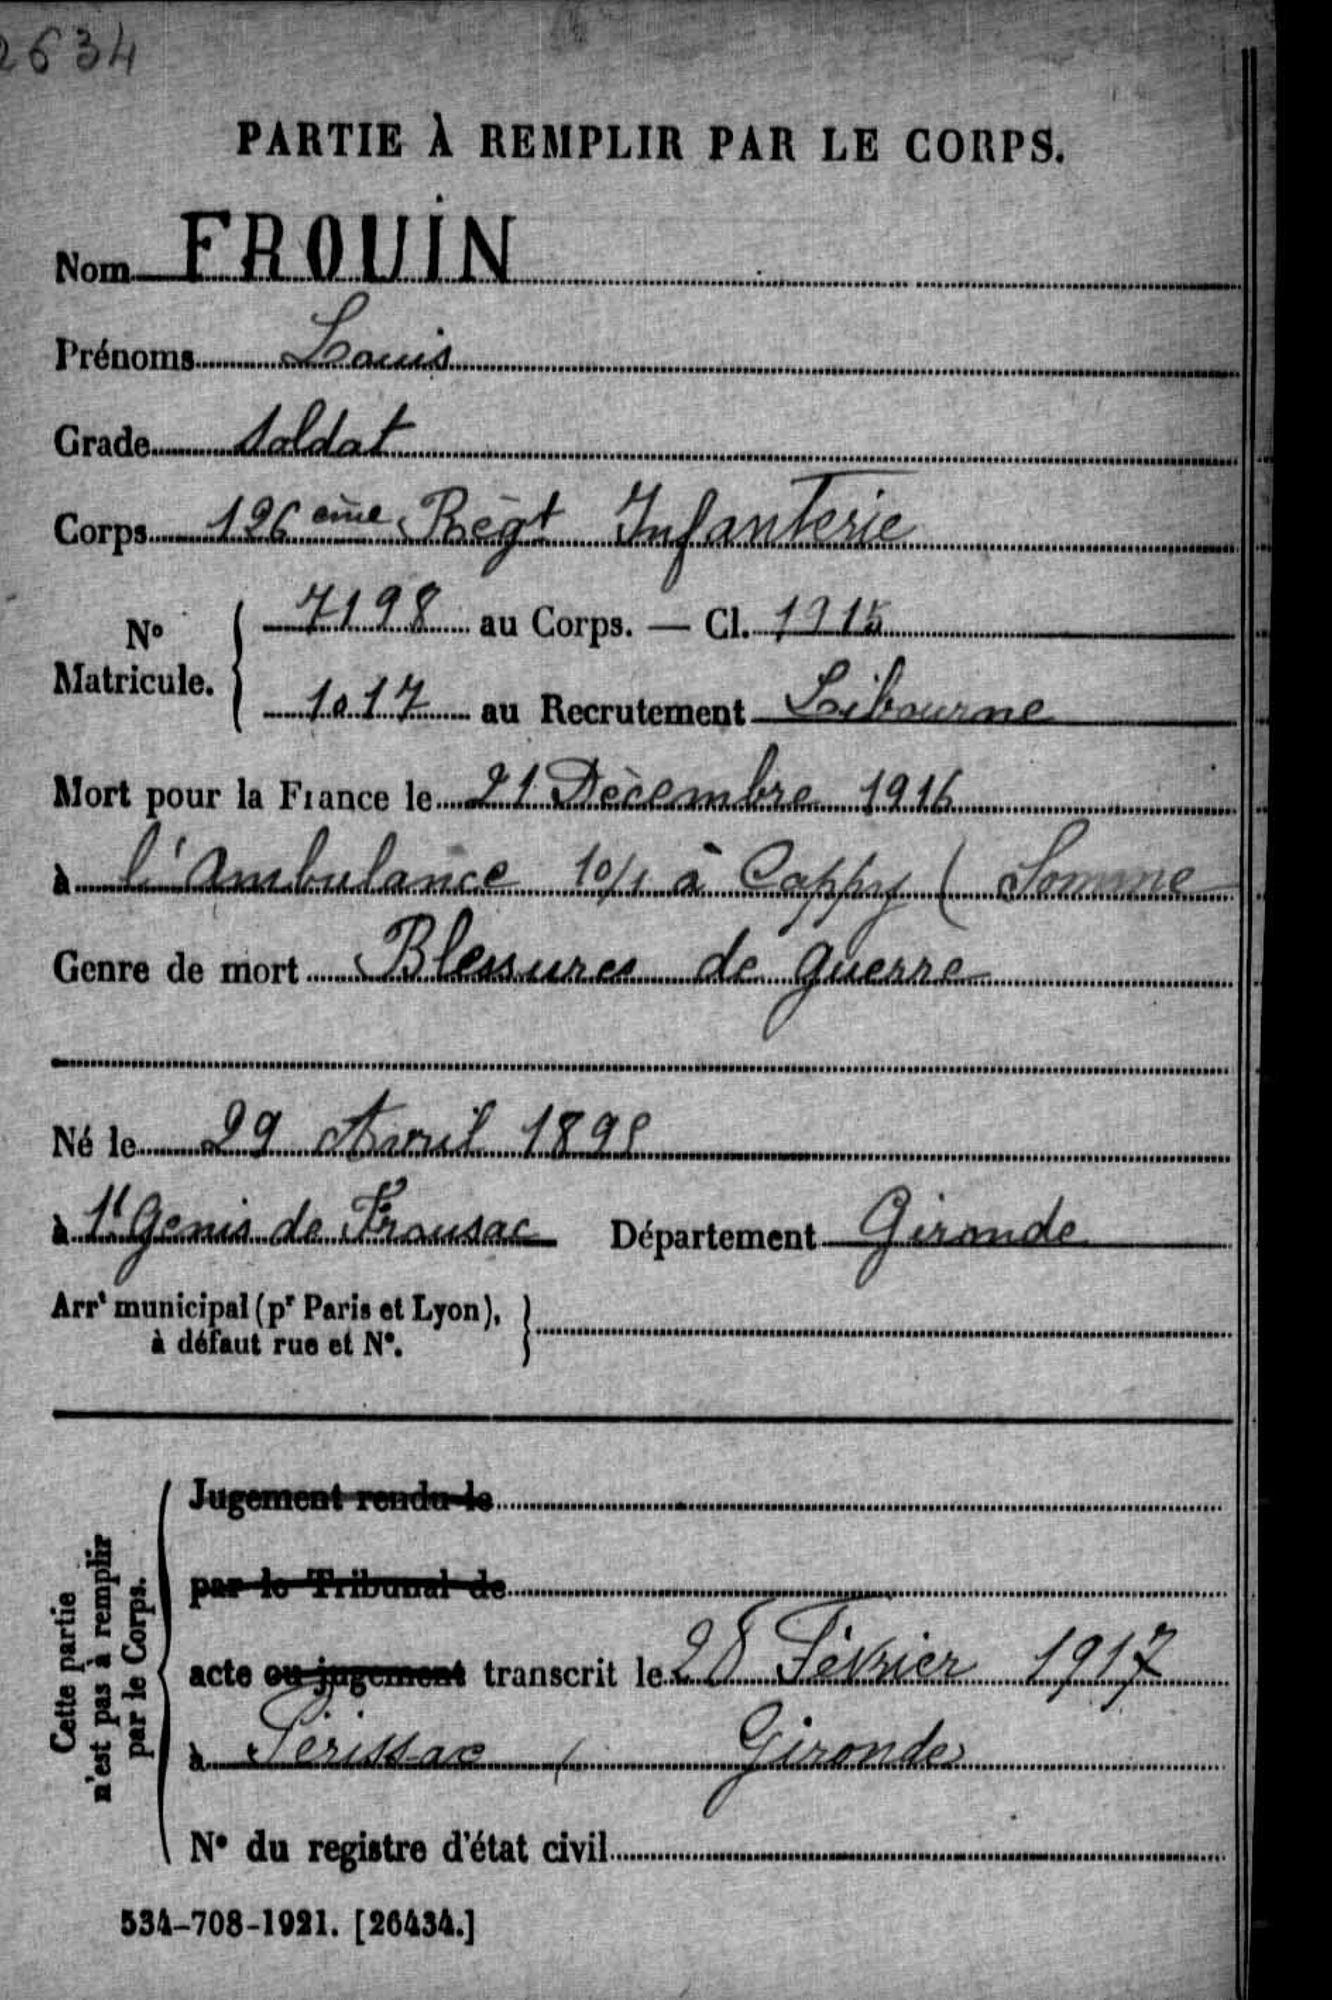 2634
PARTIE À REMPLIR PAR LE CORPS.
Nom FROUIN
Prénoms Louis
Grade Soldat
Corps 126ème Régt Infanterie
N° Matricule. { 7198 au Corps. — Cl. 1915
1017 au Recrutement Libourne
Mort pour la France le 21 Décembre 1916
à l'Ambulance 10/1 à Cappy ( Somme
Genre de mort Blessures de guerre
Né le 29 Avril 1895
à St Genis de Fronsac Département Gironde
Arrt municipal (pr Paris et Lyon), à défaut rue et N°. }
Cette partie n'est pas à remplir par le Corps.
Jugement rendu le
par le Tribunal de
acte ou jugement transcrit le 28 Février 1917
à Périssac ( Gironde
N° du registre d'état civil
534-708-1921. [26434.]